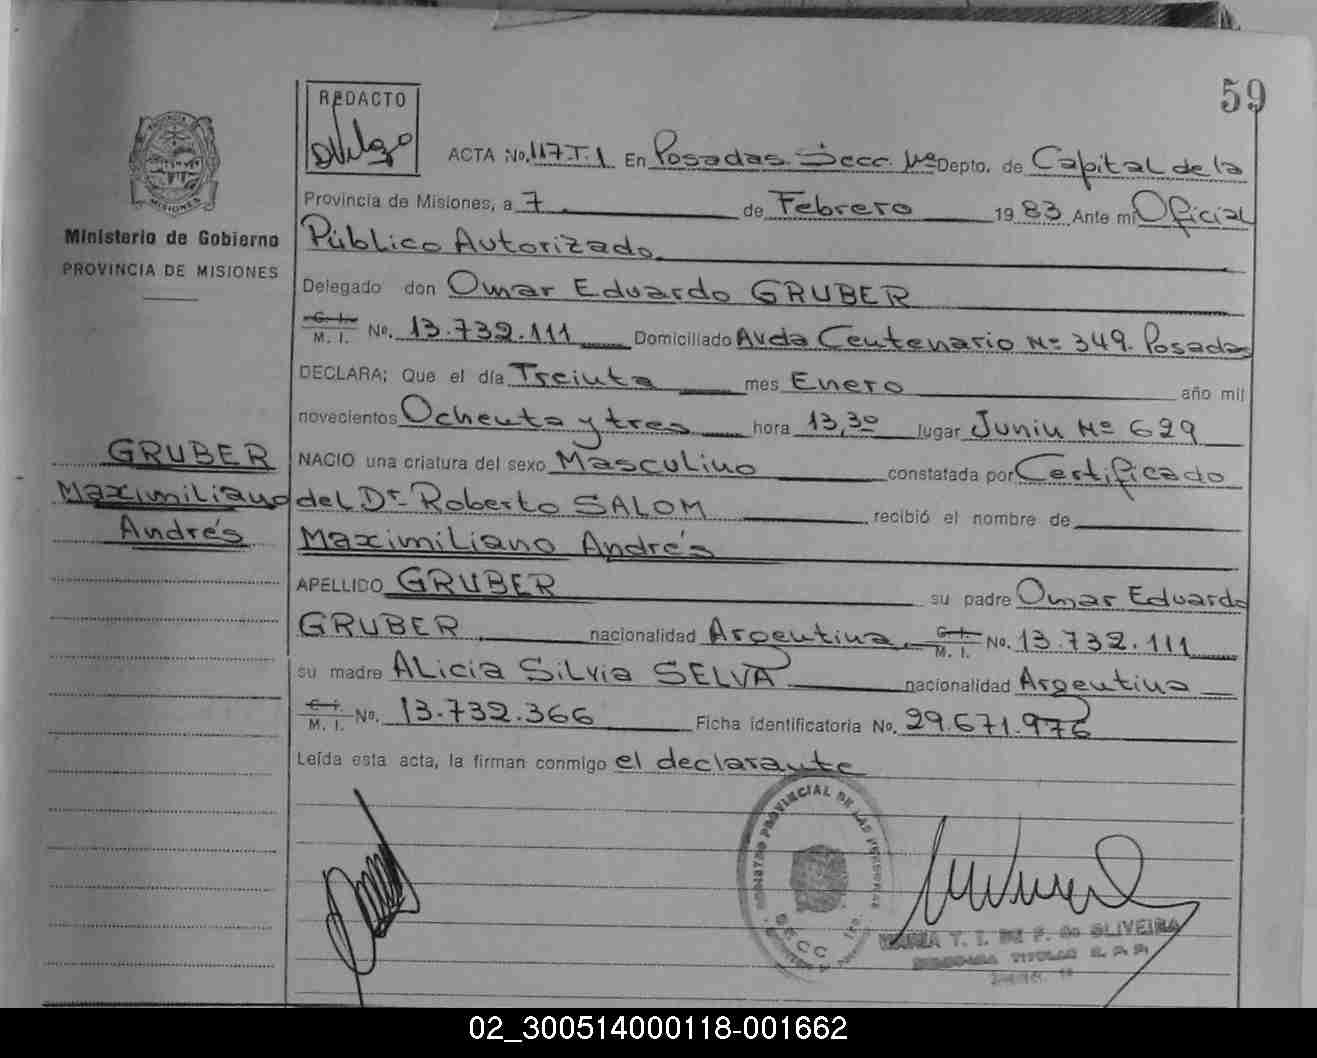 59
REDACTO
PROVINCIA DE
MISIONES
Ministerio de Gobierno
PROVINCIA DE MISIONES
GRUBER
Maximiliano
Andrés
ACTA No. 117.T.1 En Posadas Secc. 1ª Depto. de Capital de la
Provincia de Misiones, a 7 de Febrero 19 83 Ante mi Oficial
Público Autorizado
Delegado don Omar Eduardo GRUBER
C. I.
M. I. No. 13.732.111 Domiciliado Avda Centenario Nº 349. Posadas
DECLARA; Que el día Treinta mes Enero año mil
novecientos Ochenta y tres hora 13,30 lugar Junin Nº 629
NACIO una criatura del sexo Masculino constatada por Certificado
del Dr. Roberto SALOM recibió el nombre de
Maximiliano Andrés
APELLIDO GRUBER su padre Omar Eduardo
GRUBER nacionalidad Argentina C. I. M. I. No. 13.732.111
su madre Alicia Silvia SELVA nacionalidad Argentina
C. I.
M. I. No. 13.732.366 Ficha identificatoria No. 29.671.976
Leída esta acta, la firman conmigo el declarante
PROVINCIAL DE LAS PERSONAS
SECC. 1ra.
MARIA T. I. DE F. de OLIVEIRA
TITULAR R. P. P.
02_300514000118-001662